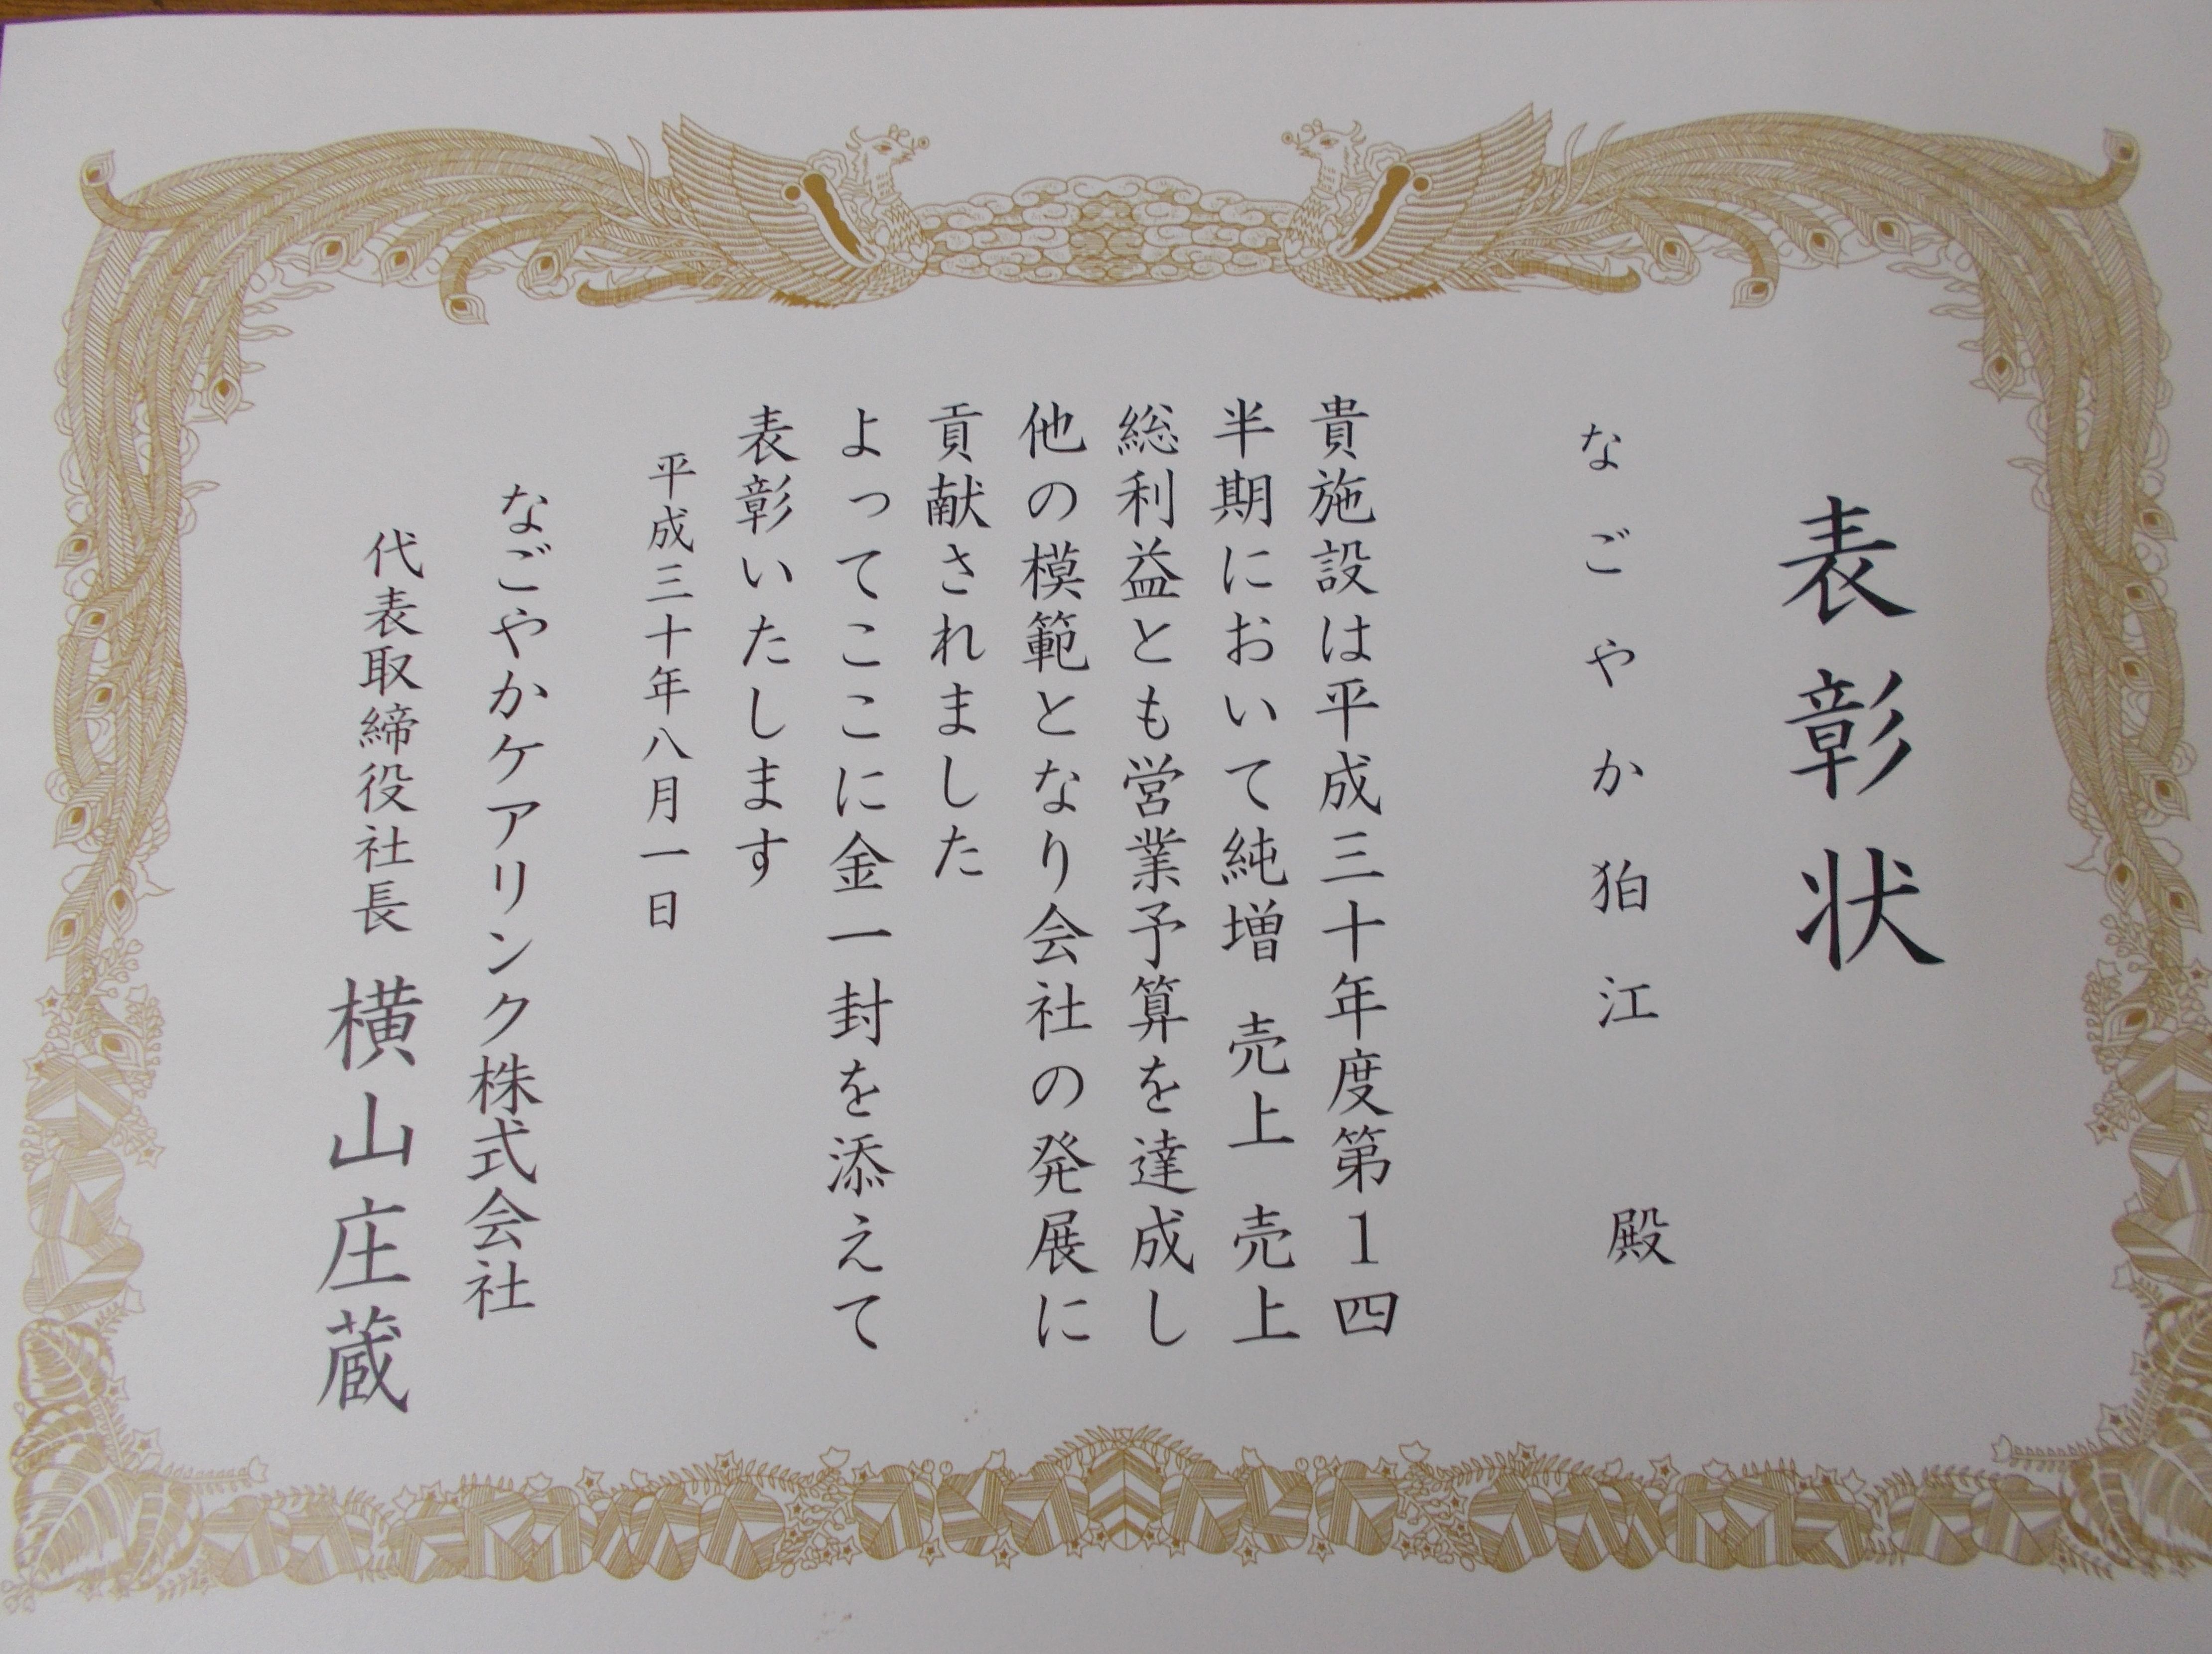 表彰状
なごやか狛江 殿
貴施設は平成三十年度第1四
半期において純増 売上 売上
総利益とも営業予算を達成し
他の模範となり会社の発展に
貢献されました
よってここに金一封を添えて
表彰いたします
平成三十年八月一日
なごやかケアリンク株式会社
代表取締役社長 横山庄蔵